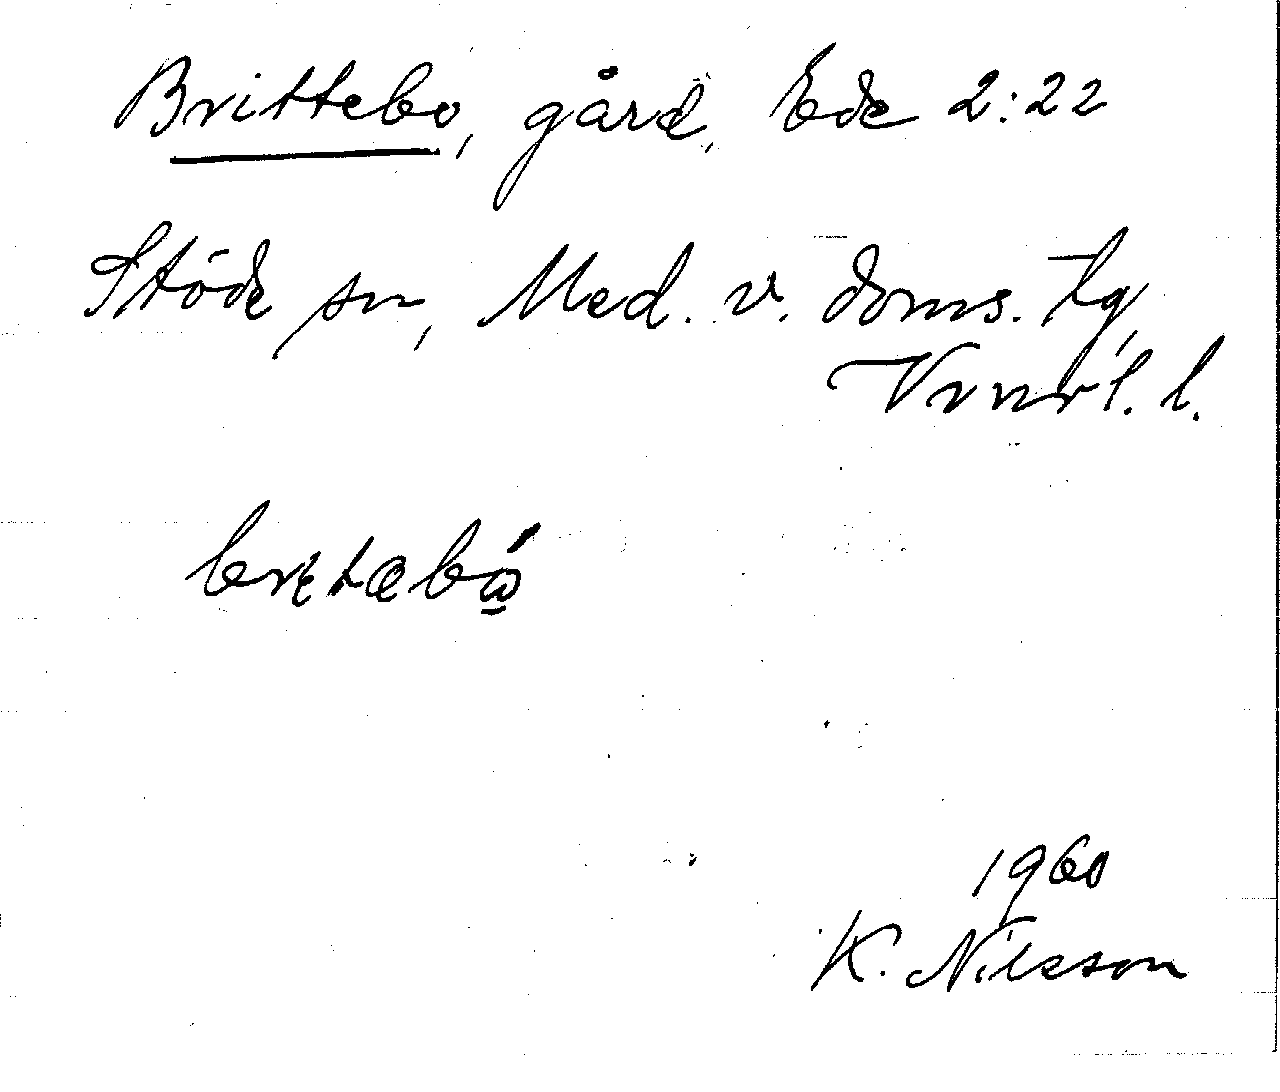 Brittebo, gård, Ede 2:22
Stöde sn, Med. v. doms. tg,
Vrnrl. l.
1960
K. Nilsson